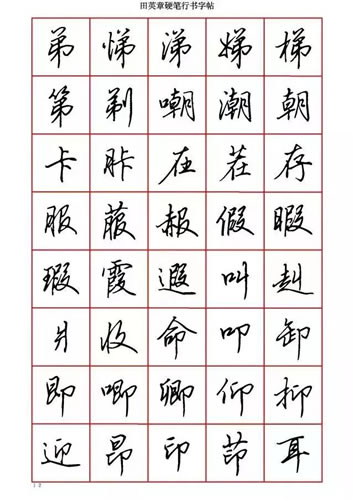 田英章硬笔行书字帖
弟 悌 涕 娣 梯
第 剃 嘲 潮 朝
卡 胩 在 茬 存
服 菔 赧 假 暇
瑕 霞 遐 叫 赳
收 命 叩 卸
即 唧 卿 仰 抑
迎 昂 印 茚 耳